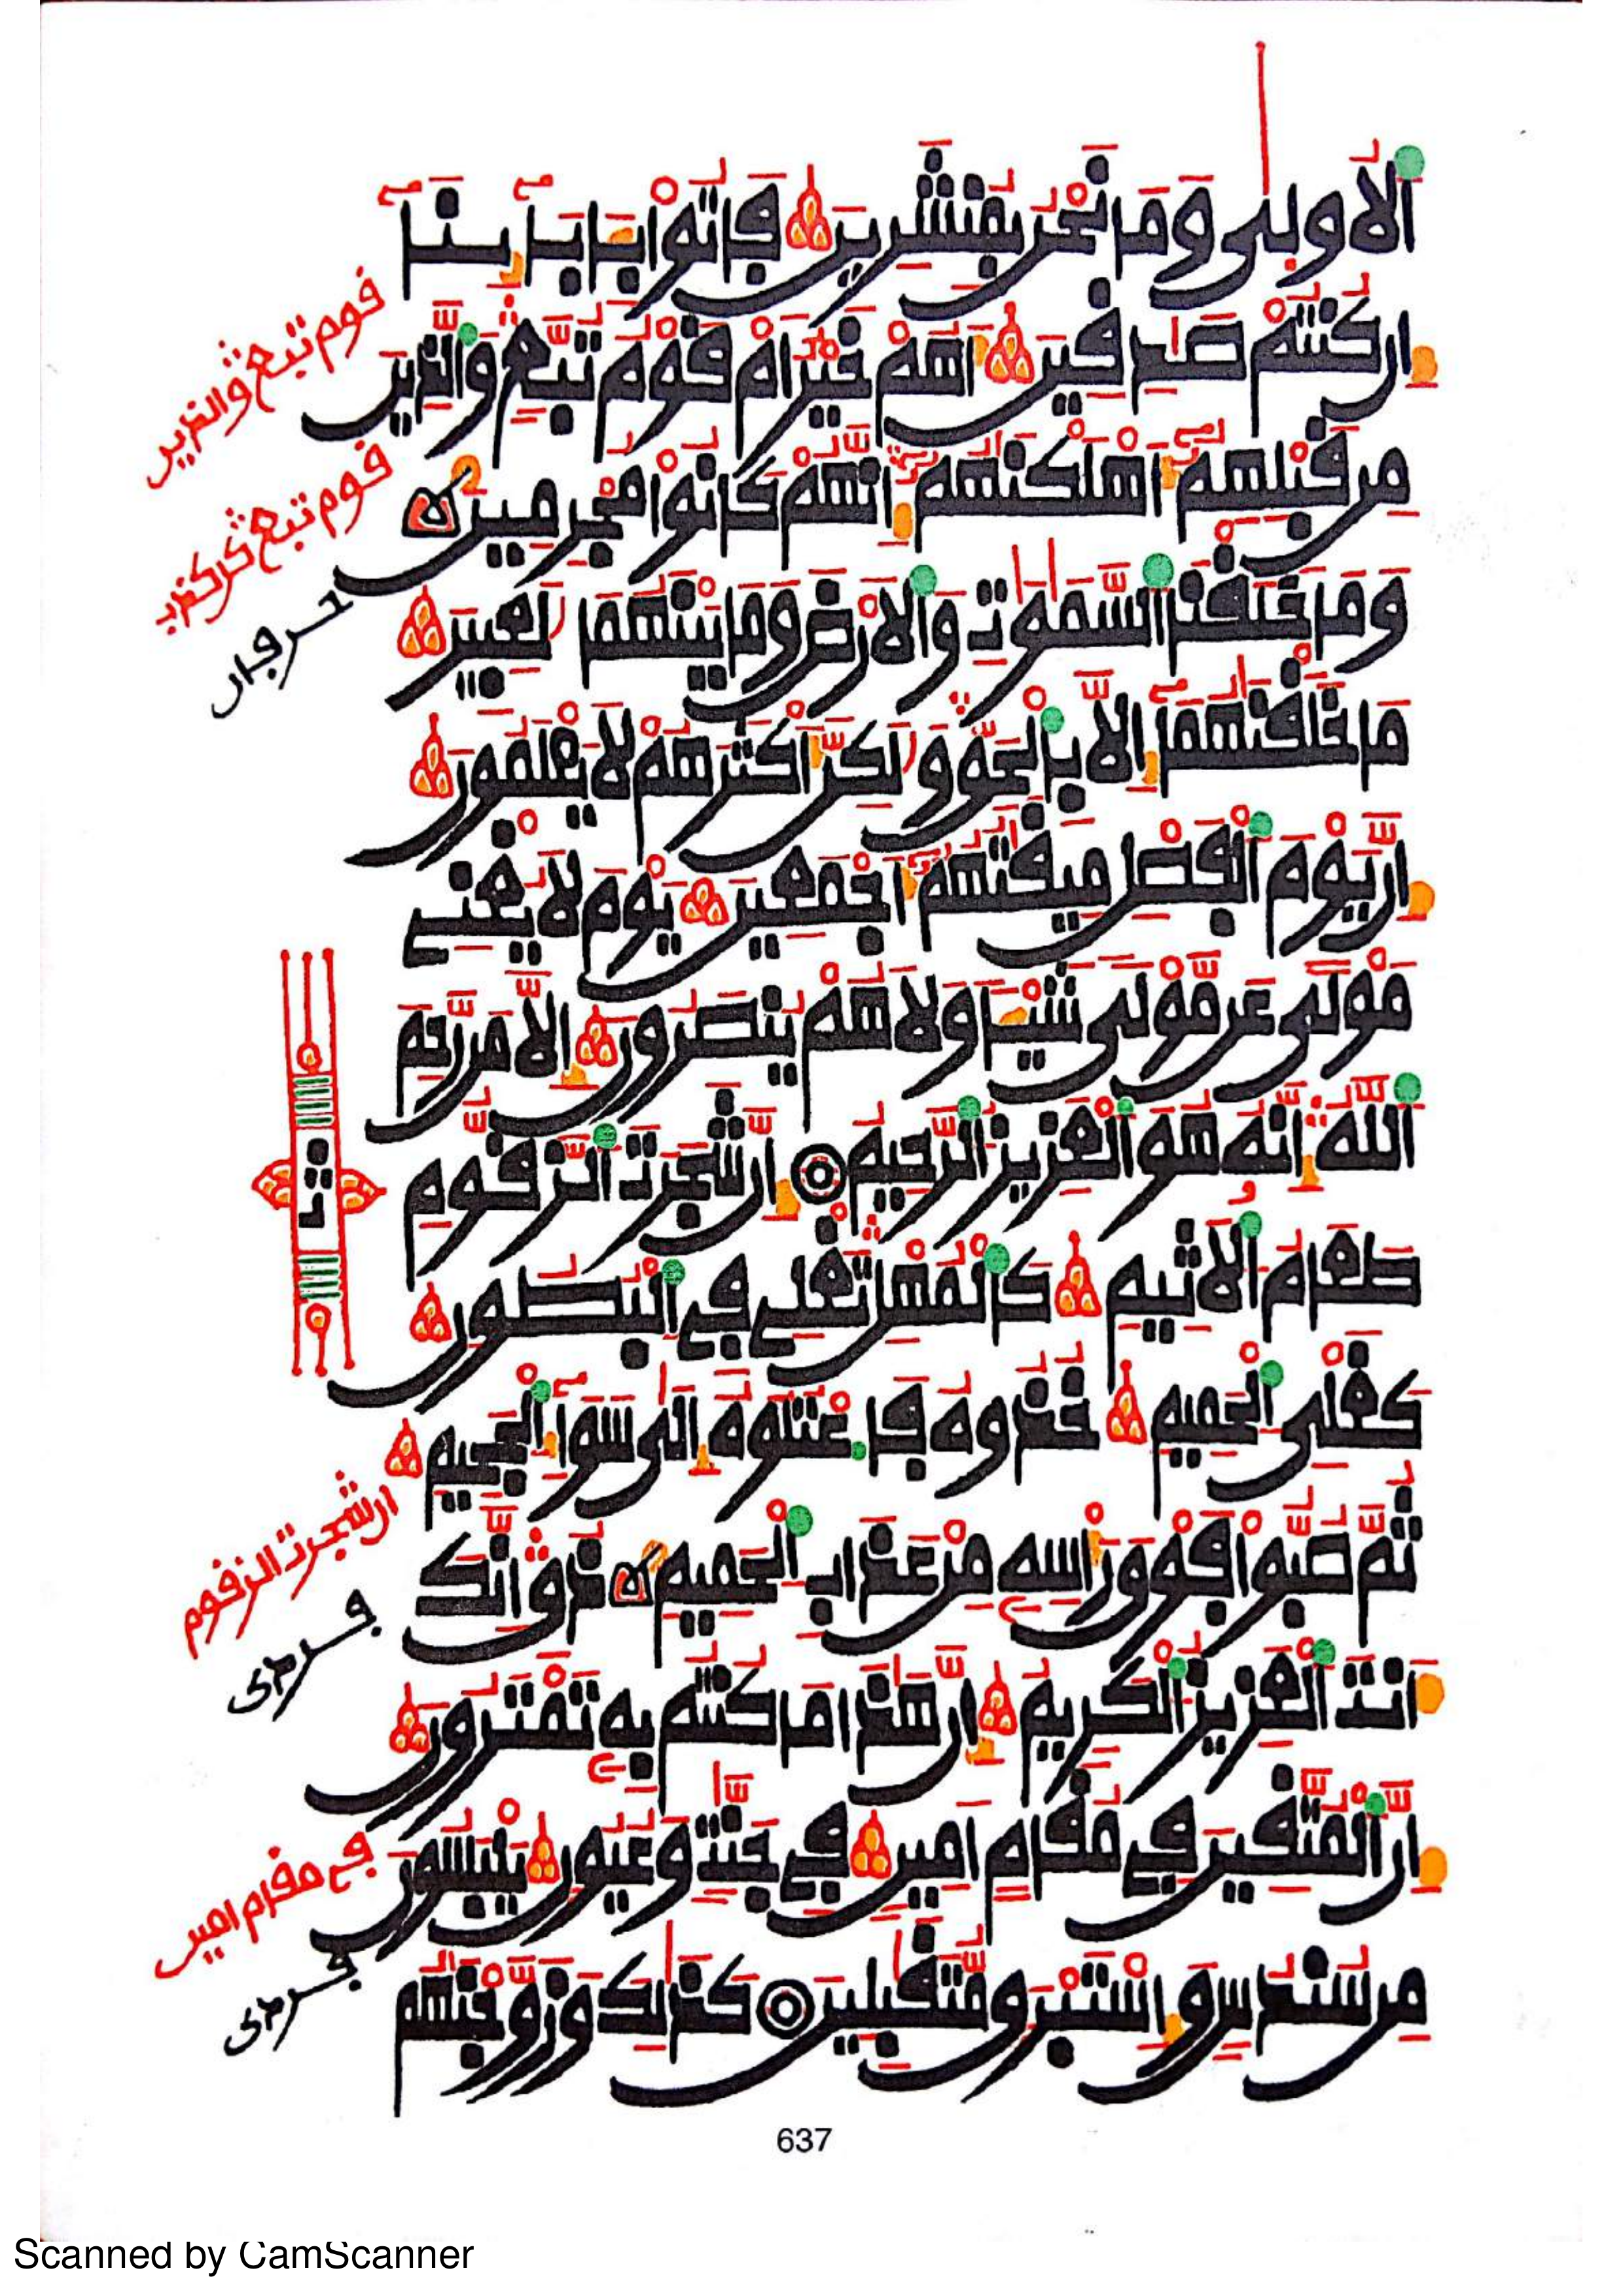 اَلُاولٜي وَمَا نَحْنُ بِمُنشَرِينَ فَاتُوا بِـَٔابَآئِنَآ
إِن كُنتُمْ صَٰدِقِينَ أَهُمْ خَيْرٌ اَمْ قَوْمُ تُبَّعٍ وَالذِينَ
مِن قَبْلِهِمُۥٓ أَهْلَكْنَٰهُمُۥٓ إِنَّهُمْ كَانُوا مُجْرِمِينَ
وَمَا خَلَقْنَا اَلسَّمَٰوَٰتِ وَالَارْضَ وَمَا بَيْنَهُمَا لَٰعِبِينَ
مَا خَلَقْنَٰهُمَآ إِلَّا بِالْحَقِّ وَلَٰكِنَّ أَكْثَرَهُمْ لَا يَعْلَمُونَ
إِنَّ يَوْمَ اَلْفَصْلِ مِيقَٰتُهُمُۥٓ أَجْمَعِينَ يَوْمَ لَا يُغْنِے
مَوْلًي عَن مَّوْلًي شَيْـٔاً وَلَا هُمْ يُنصَرُونَ إِلَّا مَن رَّحِمَ
اَللَّهُ إِنَّهُۥ هُوَ اَلْعَزِيزُ اَلرَّحِيمُ إِنَّ شَجَرَتَ اَلزَّقُّومِ
طَعَامُ اَلَاثِيمِ كَالْمُهْلِ تَغْلِے فِے اِلْبُطُونِ
كَغَلْيِ اِلْحَمِيمِ خُذُوهُ فَاعْتُلُوهُ إِلَىٰ سَوَآءِ اِلْجَحِيمِ
ثُمَّ صُبُّوا فَوْقَ رَأْسِهِۦ مِنْ عَذَابِ اِلْحَمِيمِ ذُقِ اِنَّكَ
أَنتَ اَلْعَزِيزُ اَلْكَرِيمُ إِنَّ هَٰذَا مَا كُنتُم بِهِۦ تَمْتَرُونَ
إِنَّ اَلْمُتَّقِينَ فِے مُقَامٍ اَمِينٍ فِے جَنَّٰتٍ وَعُيُونٍ يَلْبَسُونَ
مِن سُندُسٍ وَإِسْتَبْرَقٍ مُّتَقَٰبِلِينَ كَذَٰلِكَ وَزَوَّجْنَٰهُم
قوم تبع والذين
قوم تبع كل كذب
حرفان
ثمن
ان شجرت الزقوم
في مقام امين
637
Scanned by CamScanner